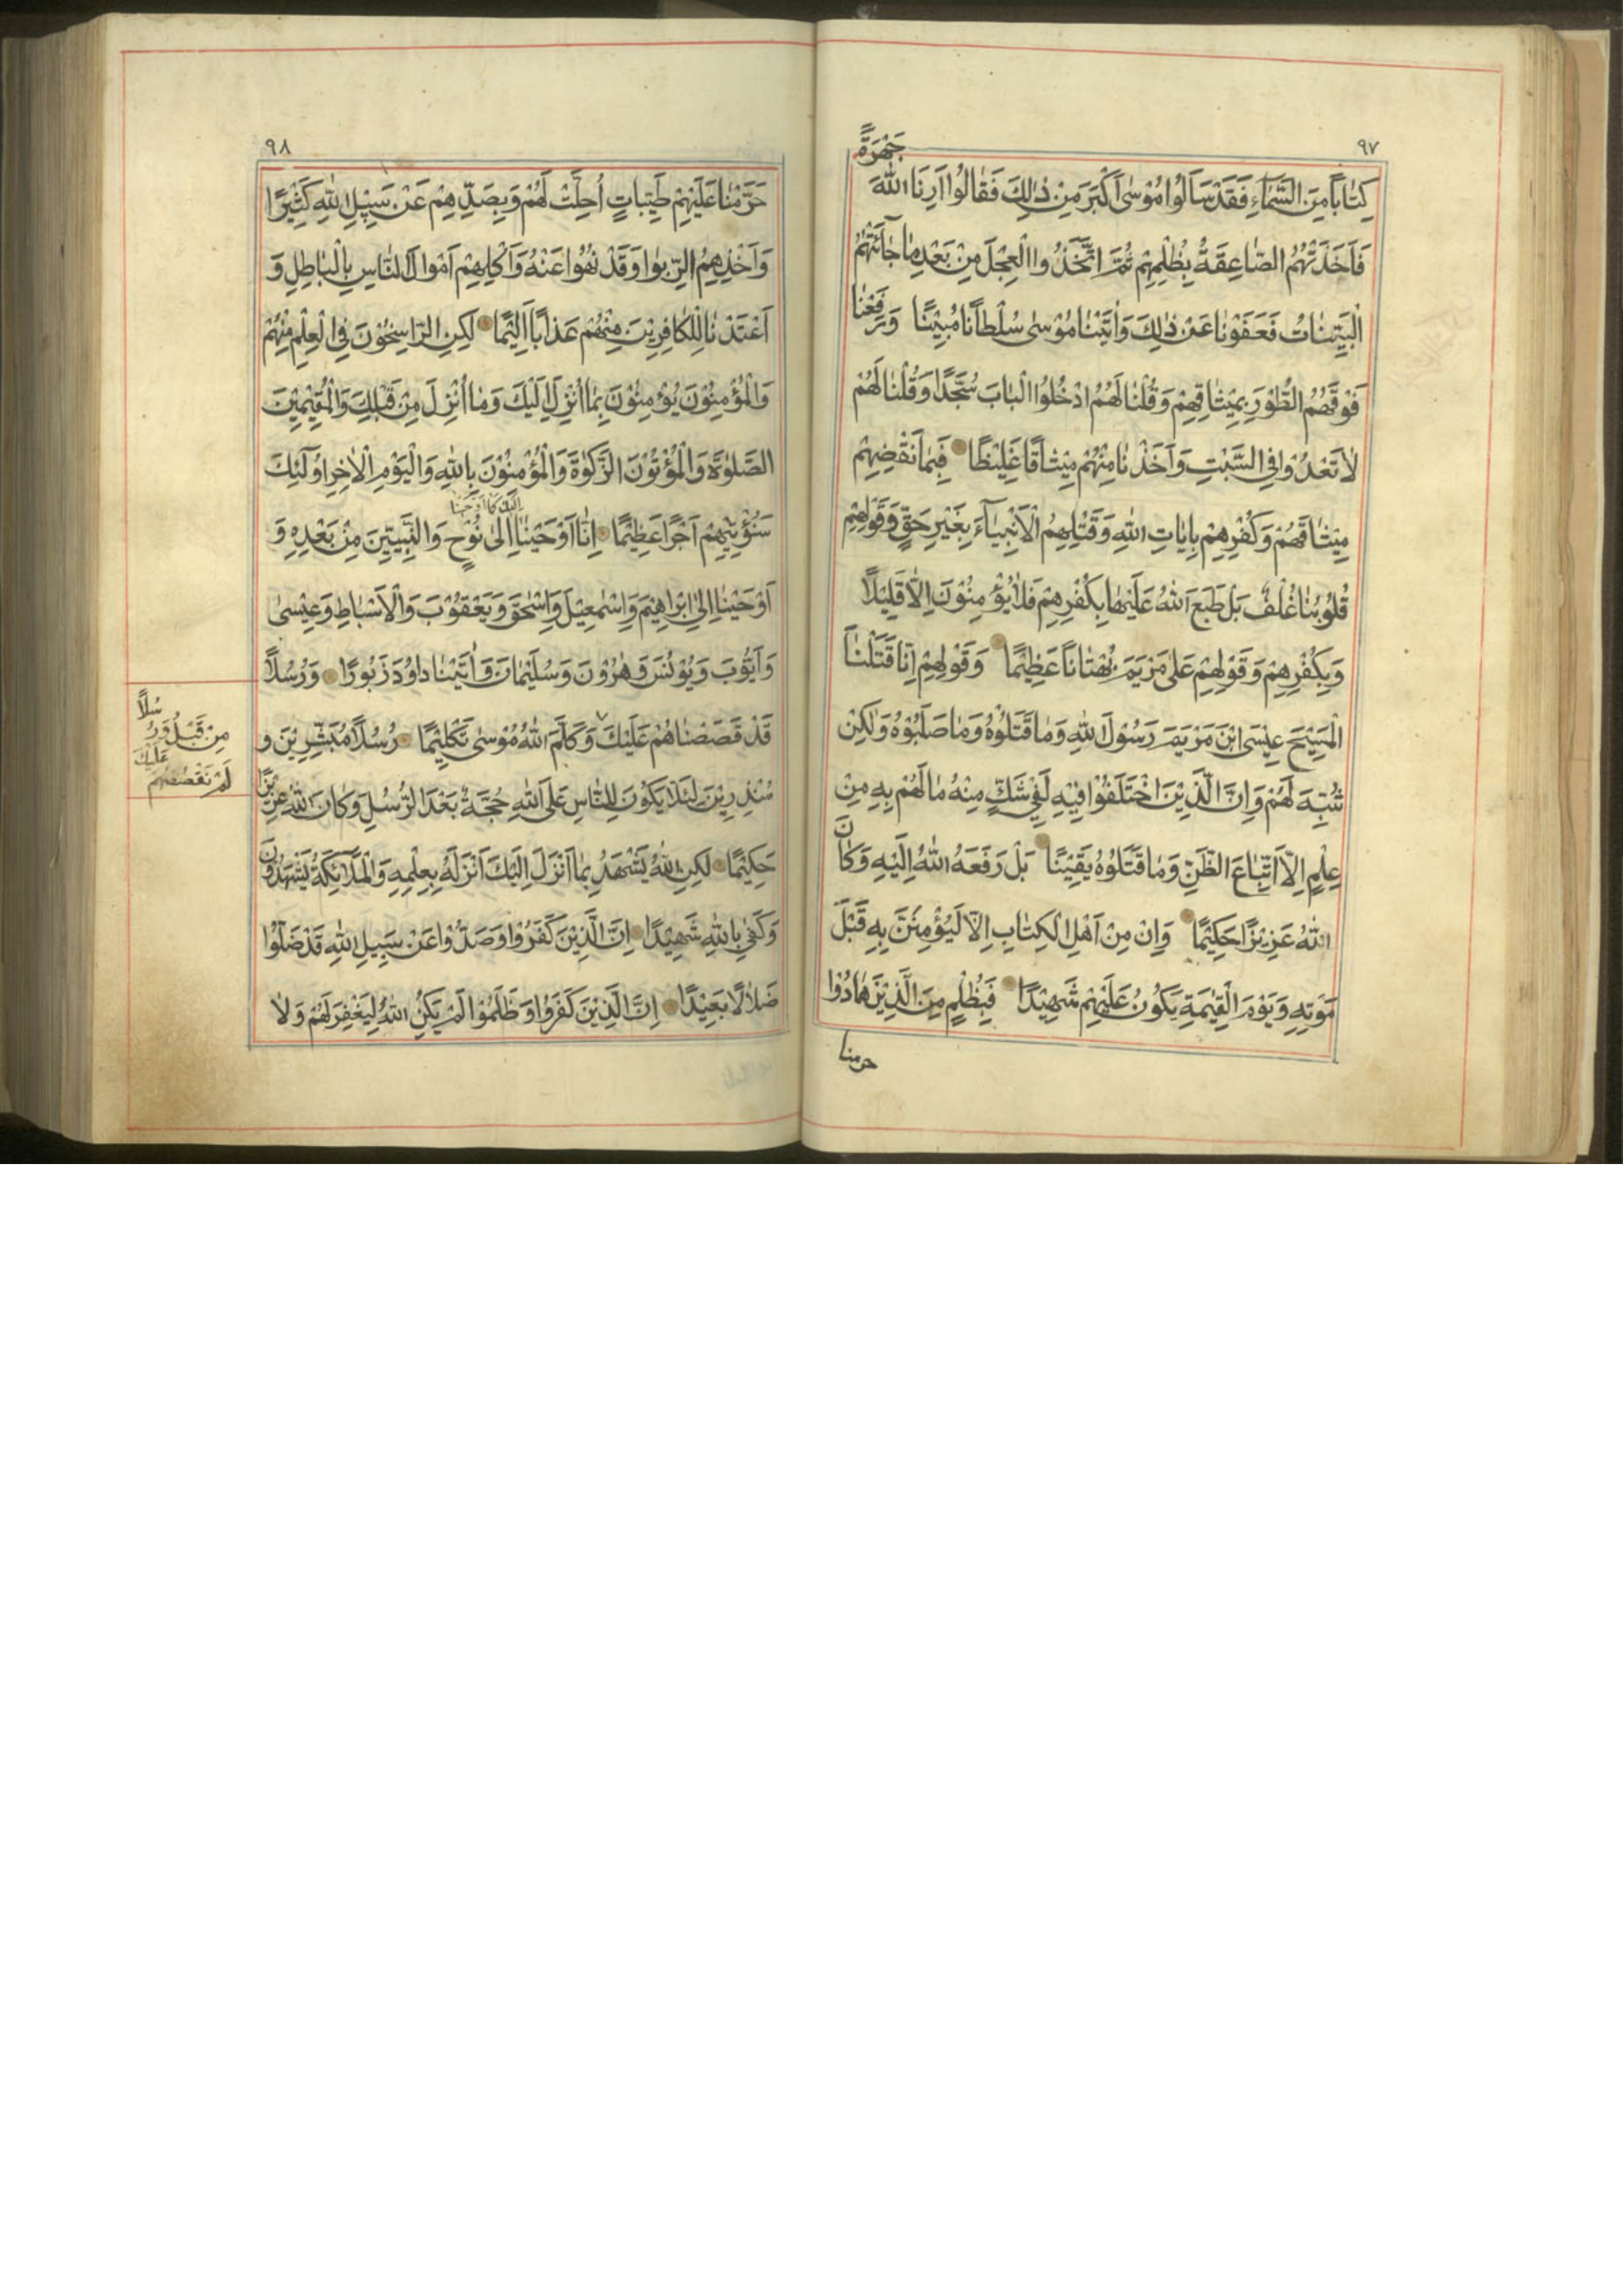 ٩٧
جَهْرَةً
كِتٰاباً مِنَ السَّمٰآءِ فَقَدْ سَاَلُوا مُوْسٰى اَكْبَرَ مِنْ ذٰلِكَ فَقٰالُوا اَرِنَا اللهَ
فَاَخَذَتْهُمُ الصّٰاعِقَةُ بِظُلْمِهِمْ ثُمَّ اتَّخَذُوا الْعِجْلَ مِنْ بَعْدِ مٰا جٰآئَتْهُمُ
الْبَيِّنٰاتُ فَعَفَوْنٰا عَنْ ذٰلِكَ وَاٰتَيْنٰا مُوْسٰى سُلْطٰانًا مُبِيْنًا وَرَفَعْنٰا
فَوْقَهُمُ الطُّوْرَ بِمِيْثٰاقِهِمْ وَقُلْنٰا لَهُمُ ادْخُلُوا الْبٰابَ سُجَّدًا وَقُلْنٰا لَهُمْ
لٰا تَعْدُوْا فِي السَّبْتِ وَاَخَذْنٰا مِنْهُمْ مِيْثٰاقًا غَلِيْظًا فَبِمٰا نَقْضِهِمْ
مِيْثٰاقَهُمْ وَكُفْرِهِمْ بِاٰيٰاتِ اللهِ وَقَتْلِهِمُ الْاَنْبِيٰآءَ بِغَيْرِ حَقٍّ وَقَوْلِهِمْ
قُلُوْبُنٰا غُلْفٌ بَلْ طَبَعَ اللهُ عَلَيْهٰا بِكُفْرِهِمْ فَلٰا يُؤْمِنُوْنَ اِلّٰا قَلِيْلًا
وَبِكُفْرِهِمْ وَقَوْلِهِمْ عَلٰى مَرْيَمَ بُهْتٰانًا عَظِيْمًا وَقَوْلِهِمْ اِنّٰا قَتَلْنَا
الْمَسِيْحَ عِيْسَى ابْنَ مَرْيَمَ رَسُوْلَ اللهِ وَمٰا قَتَلُوْهُ وَمٰا صَلَبُوْهُ وَلٰكِنْ
شُبِّهَ لَهُمْ وَاِنَّ الَّذِيْنَ اخْتَلَفُوْا فِيْهِ لَفِيْ شَكٍّ مِنْهُ مٰا لَهُمْ بِهِ مِنْ
عِلْمٍ اِلَّا اتِّبٰاعَ الظَّنِّ وَمٰا قَتَلُوْهُ يَقِيْنًا بَلْ رَفَعَهُ اللهُ اِلَيْهِ وَكٰانَ
اللهُ عَزِيْزًا حَكِيْمًا وَاِنْ مِنْ اَهْلِ الْكِتٰابِ اِلّٰا لَيُؤْمِنَنَّ بِهِ قَبْلَ
مَوْتِهِ وَيَوْمَ الْقِيٰمَةِ يَكُوْنُ عَلَيْهِمْ شَهِيْدًا فَبِظُلْمٍ مِنَ الَّذِيْنَ هٰادُوْا
حرمنا
٩٨
حَرَّمْنٰا عَلَيْهِمْ طَيِّبٰاتٍ اُحِلَّتْ لَهُمْ وَبِصَدِّهِمْ عَنْ سَبِيْلِ اللهِ كَثِيْرًا
وَاَخْذِهِمُ الرِّبٰوا وَقَدْ نُهُوْا عَنْهُ وَاَكْلِهِمْ اَمْوٰالَ النّٰاسِ بِالْبٰاطِلِ وَ
اَعْتَدْنٰا لِلْكٰافِرِيْنَ مِنْهُمْ عَذٰابًا اَلِيْمًا لٰكِنِ الرّٰاسِخُوْنَ فِي الْعِلْمِ مِنْهُمْ
وَالْمُؤْمِنُوْنَ يُؤْمِنُوْنَ بِمٰا اُنْزِلَ اِلَيْكَ وَمٰا اُنْزِلَ مِنْ قَبْلِكَ وَالْمُقِيْمِيْنَ
الصَّلٰوةَ وَالْمُؤْتُوْنَ الزَّكٰوةَ وَالْمُؤْمِنُوْنَ بِاللهِ وَالْيَوْمِ الْاٰخِرِ اُولٰئِكَ
اِلَيْكَ كَمٰا اَوْحَيْنٰا
سَنُؤْتِيْهِمْ اَجْرًا عَظِيْمًا اِنّٰا اَوْحَيْنٰا اِلٰى نُوْحٍ وَالنَّبِيِّيْنَ مِنْ بَعْدِهِ وَ
اَوْحَيْنٰا اِلٰى اِبْرٰاهِيْمَ وَاِسْمٰعِيْلَ وَاِسْحٰقَ وَيَعْقُوْبَ وَالْاَسْبٰاطِ وَعِيْسٰى
وَاَيُّوْبَ وَيُوْنُسَ وَهٰرُوْنَ وَسُلَيْمٰانَ وَاٰتَيْنٰا دٰاوُدَ زَبُوْرًا وَرُسُلًا
قَدْ قَصَصْنٰاهُمْ عَلَيْكَ وَكَلَّمَ اللهُ مُوْسٰى تَكْلِيْمًا رُسُلًا مُبَشِّرِيْنَ وَ
مُنْذِرِيْنَ لِئَلّٰا يَكُوْنَ لِلنّٰاسِ عَلَى اللهِ حُجَّةٌ بَعْدَ الرُّسُلِ وَكٰانَ اللهُ عَزِيْزًا
حَكِيْمًا لٰكِنِ اللهُ يَشْهَدُ بِمٰا اَنْزَلَ اِلَيْكَ اَنْزَلَهُ بِعِلْمِهِ وَالْمَلٰآئِكَةُ يَشْهَدُوْنَ
وَكَفٰى بِاللهِ شَهِيْدًا اِنَّ الَّذِيْنَ كَفَرُوْا وَصَدُّوْا عَنْ سَبِيْلِ اللهِ قَدْ ضَلُّوْا
ضَلٰالًا بَعِيْدًا اِنَّ الَّذِيْنَ كَفَرُوْا وَظَلَمُوْا لَمْ يَكُنِ اللهُ لِيَغْفِرَ لَهُمْ وَلٰا
مِنْ قَبْلُ وَرُسُلًا
لَمْ نَقْصُصْهُمْ عَلَيْكَ